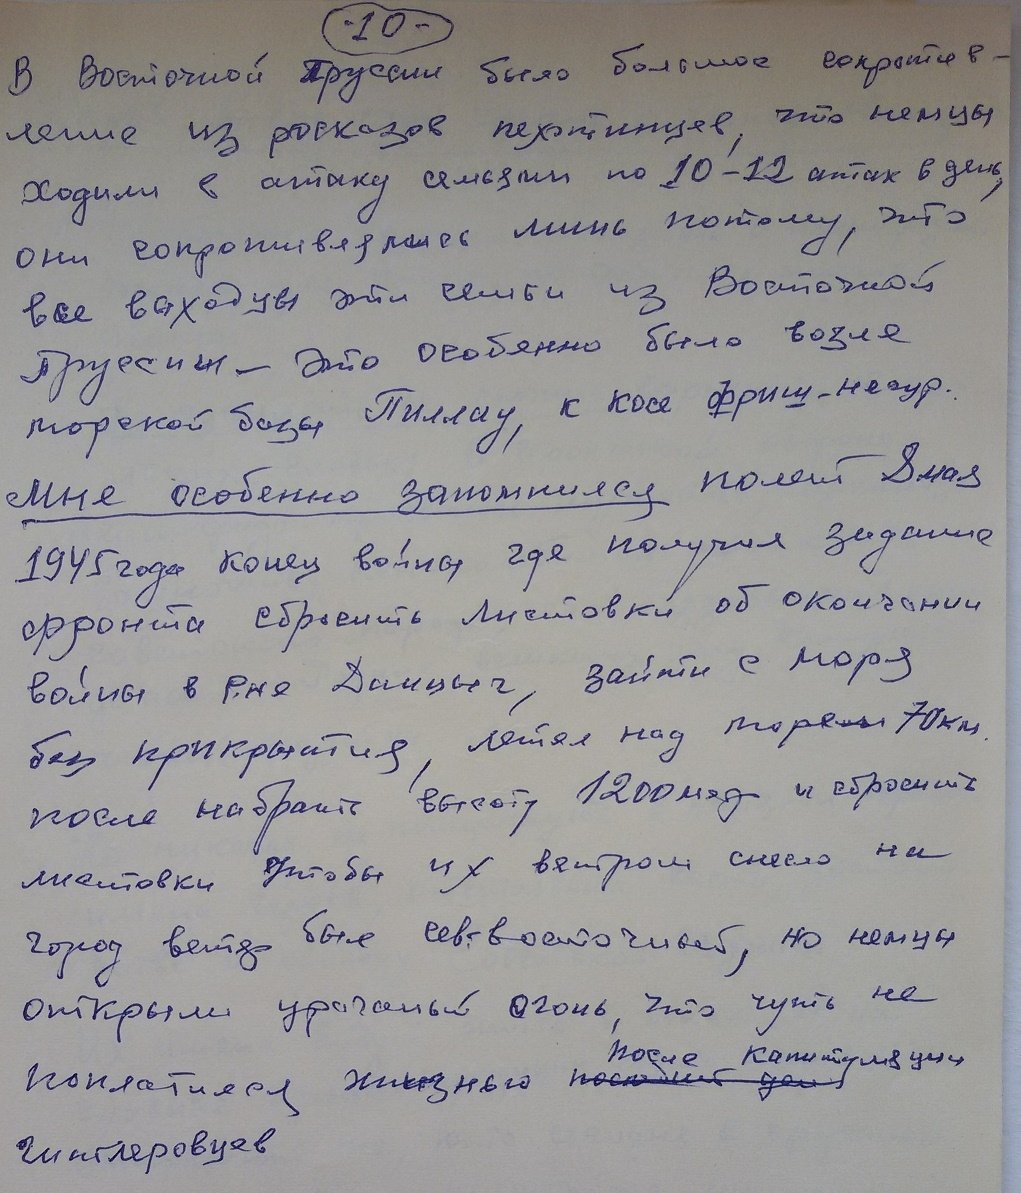 -10-
В Восточной Пруссии было большое сопротив-
ление из росказов пехотинцев, что немцы
ходили в атаку семьями по 10-12 атак в день,
они сопротивлялись лишь потому, что
все выходцы эти семьи из Восточной
Пруссии – это особенно было возле
морской базы Пиллау, к косе Фриш-нерур.
Мне особенно запомнился полет 8 мая
1945 года конец войны где получил задание
фронта сбросить листовки об окончании
войны в р-не Данцыг, зайти с моря
без прикрытия, летел над морем 70 км.
после набрать высоту 1200 и сбросить
листовки чтобы их ветром снесло на
город ветер был сев-восточный, но немцы
открыли ураганый огонь, что чуть не
поплатился жизнью после капитуляции
гитлеровцев